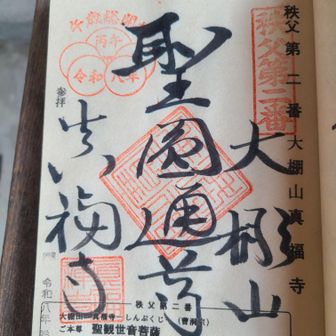 秩父第二番 大棚山真福寺
秩父第二番
午歳総開帳
丙午
令和八年
大棚山
聖圓通尊
参拝
真福寺
令和八年
秩父第二番
大棚山 真福寺 しんぷくじ (曹洞宗)
ご本尊 聖観世音菩薩